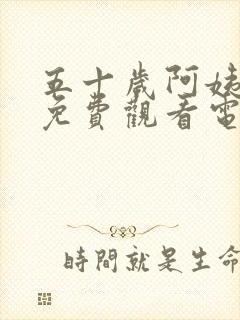 五十歲阿姨
免費觀看電
時間就是生命